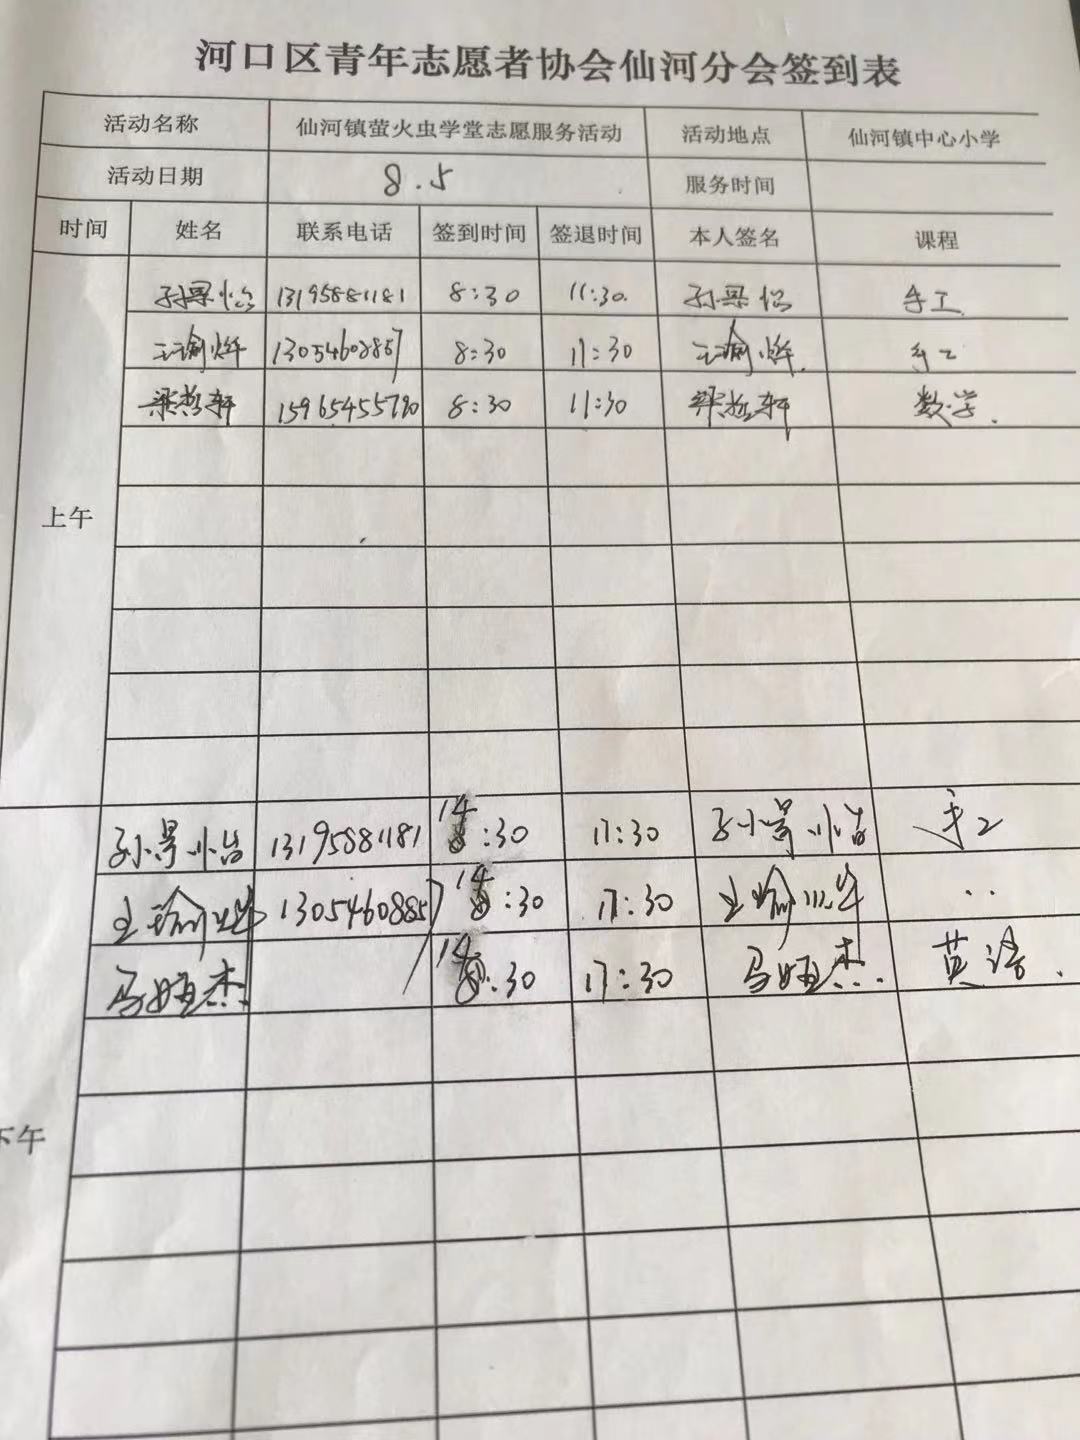 河口区青年志愿者协会仙河分会签到表
活动名称 仙河镇萤火虫学堂志愿服务活动 活动地点 仙河镇中心小学
活动日期 8.5 服务时间
时间 姓名 联系电话 签到时间 签退时间 本人签名 课程
上午
孙景怡 13195881181 8:30 11:30 孙景怡 手工
王瑜烨 13054608857 8:30 11:30 王瑜烨 手工
梁哲轩 15965455790 8:30 11:30 梁哲轩 数学
下午
孙景怡 13195881181 14:30 17:30 孙景怡 手工
王瑜烨 13054608857 14:30 17:30 王瑜烨 ..
马娅杰 14:30 17:30 马娅杰 英语